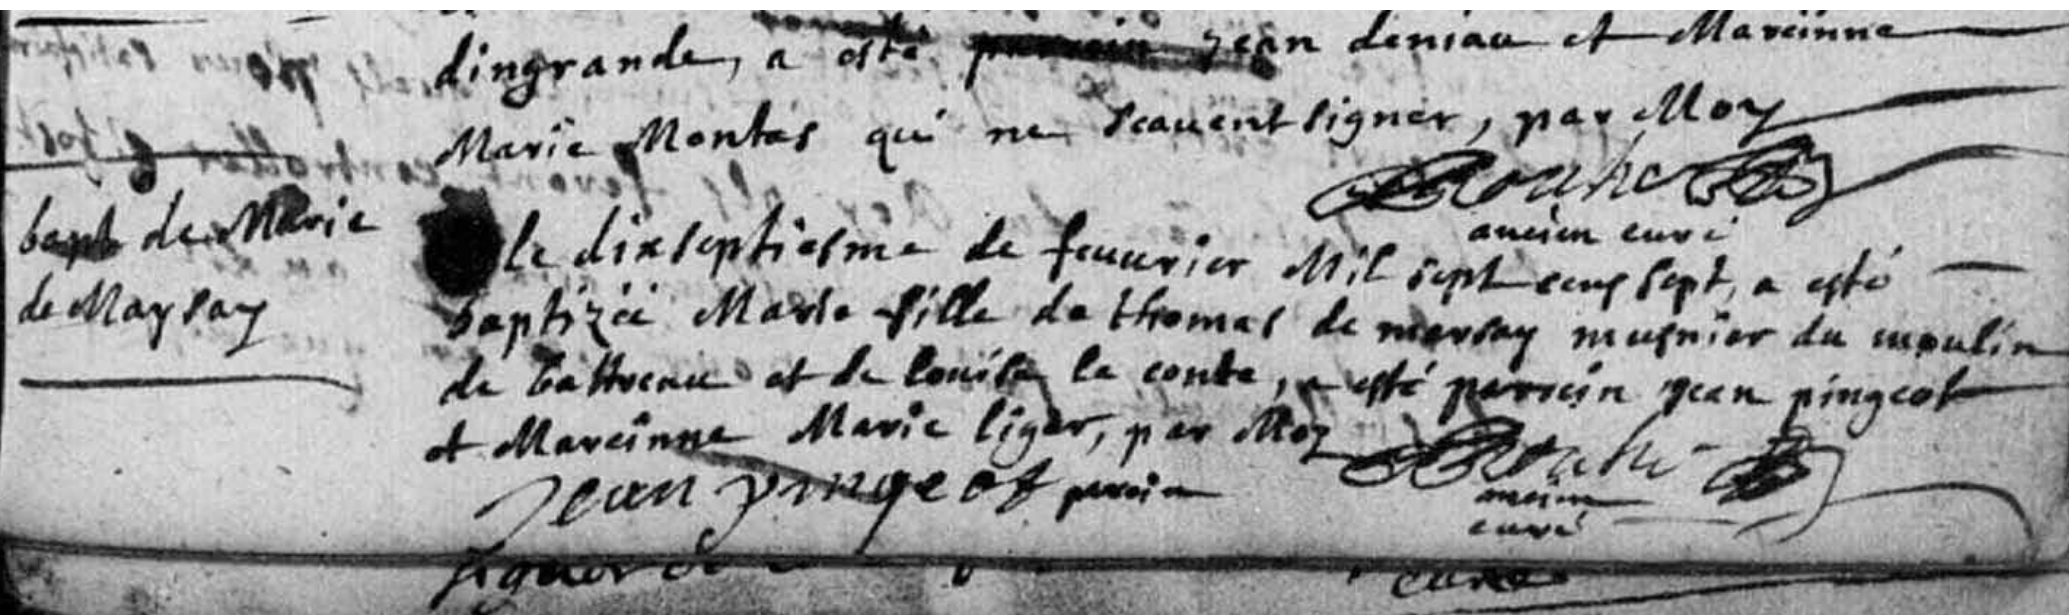 dingrande, a esté parrein jean deniau et Mareinne
Marie Montas qui ne scauent signer, par Moy
ancien curé
bapt de Marie
de Marsay
le dixseptiesme de feuurier Mil sept cens sept, a esté
baptizéé Marie fille de thomas de marsay musnier du moulin
de battreau et de louise le conte, a esté parrein jean pingeot
et Mareinne Marie liger, par Moy
jean pingeot parein
ancien
curé